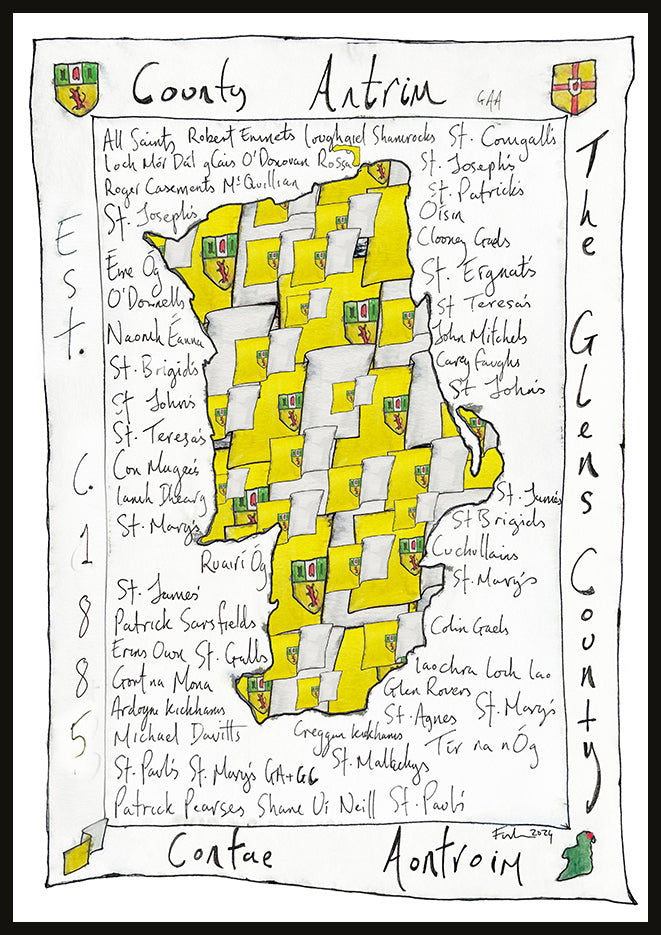 County Antrim GAA
All Saints Robert Emmets Loughgiel Shamrocks St. Comgall's
Loch Mór Dál gCais O'Donovan Rossa
Roger Casements McQuillian
St. Joseph's
Eire Óg
O'Donnells
Naomh Éanna
St. Brigid's
St John's
St. Teresas
Con Magees
Lamh Dhearg
St. Mary's
Ruairí Óg
St. James'
Patrick Sarsfields
Erins Own St. Galls
Gort na Mona
Ardoyne Kickhams
Michael Davitts
St. Paul's St. Mary's GA+GC
Patrick Pearses Shane Uí Neill St. Paul's
St. Joseph's
St. Patrick's
Oisin
Clooney Gaels
St. Ergnat's
St Teresa's
John Mitchels
Carey Faughs
St John's
St. James
St Brigids
Cuchullains
St. Mary's
Colin Gaels
Laochra Loch Lao
Glen Rovers
St. Agnes St. Mary's
Creggan Kickhams
Tír na nÓg
St. Malachys
Est. C. 1885
The Glens County
2024
Contae Aontroim